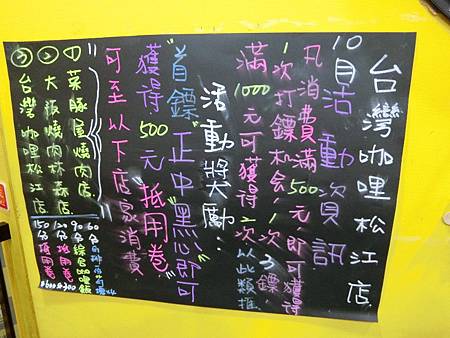 台灣咖哩松江店
10月活動資訊
凡消費滿500元,即可獲得
1次打鏢机会/1次3鏢
滿1000元可獲得2次以此類推
活動獎勵:
"首鏢"正中黑心即可
獲得500元"抵用卷"
可至以下店家消費"
①菜豚屋燒肉店
②大阪燒肉林森店
③台灣咖哩松江店
60分
90分 綜合咖哩飯
120分 抵用卷
150分 抵用卷